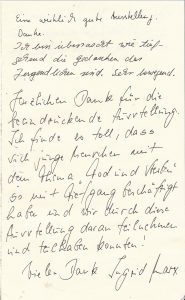 Eine wirklich gute Ausstellung.
Danke.
Ich bin überrascht wie tief-
gehend die Gedanken des
Jugendlichen sind. Sehr bewegend.
Herzlichen Danke für die
beeindruckende Ausstellung.
Ich finde es toll, dass
sich junge Menschen mit
dem Thema "Tod und Sterben"
so mit Tiefgang beschäftigt
haben und wir durch diese
Ausstellung daran teilnehmen
und teilhaben konnten!
Vielen Dank Ingrid Marx